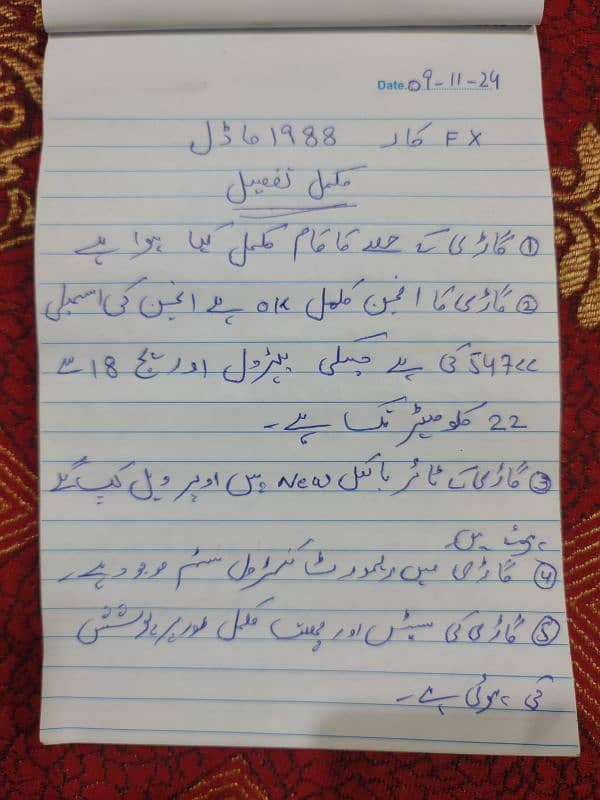 Date. 09-11-24
FX کار 1988 ماڈل
مکمل تفصیل
① گاڑی کے کا کام مکمل کیا ہوا ہے
② گاڑی کا انجن مکمل ok ہے انجن کی اسمبلی
547cc کی ہے جسکی پیٹرول اوریج 18 سے
22 کلومیٹر تک ہے۔
③ گاڑی کے ٹائر بالکل New ہیں اوپر ویل کپ لگے
ہوئے ہیں۔
④ گاڑی میں ریموٹ کنٹرول سسٹم موجود ہے۔
⑤ گاڑی کی سیٹس اور چھت مکمل طور پر پوشش
کی ہوئی ہے۔